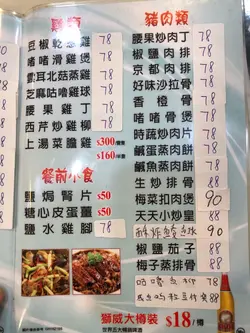 雞類
豆椒乾蔥雞 78
啫啫滑雞煲 78
雲耳北菇蒸雞 78
芝麻咕嚕雞球 78
腰果雞丁 78
西芹炒雞柳 78
上湯菜膽雞 $300/隻
$160/半隻
餐前小食
鹽焗腎片 $50
糖心皮蛋薑 $50
鹽水雞腳 78
豬肉類
腰果炒肉丁 78
椒鹽肉排 78
京都肉排 78
好味沙拉骨 78
香橙骨 78
啫啫骨煲 78
時蔬炒肉片 78
鹹蛋蒸肉餅 78
鹹魚蒸肉餅 78
生炒排骨 88
梅菜扣肉煲 90
天天小炒皇 88
90
椒鹽茄子 78
梅子蒸排骨 88
78
88
獅威大樽裝 $18/樽
世界五大暢銷啤酒